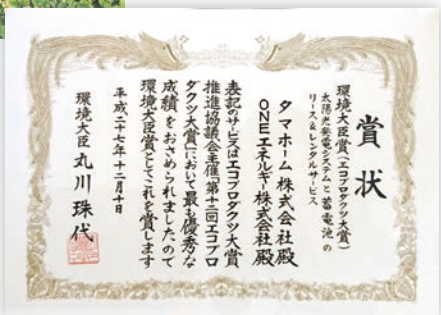 賞状
環境大臣賞(エコプロダクツ大賞)
太陽光発電システムと蓄電池の
リース&レンタルサービス
タマホーム株式会社殿
ONEエネルギー株式会社殿
表記のサービスはエコプロダクツ大賞
推進協議会主催「第十二回エコプロ
ダクツ大賞」において最も優秀な
成績をおさめられましたので
環境大臣賞としてこれを賞します
平成二十七年十二月十日
環境大臣 丸川珠代